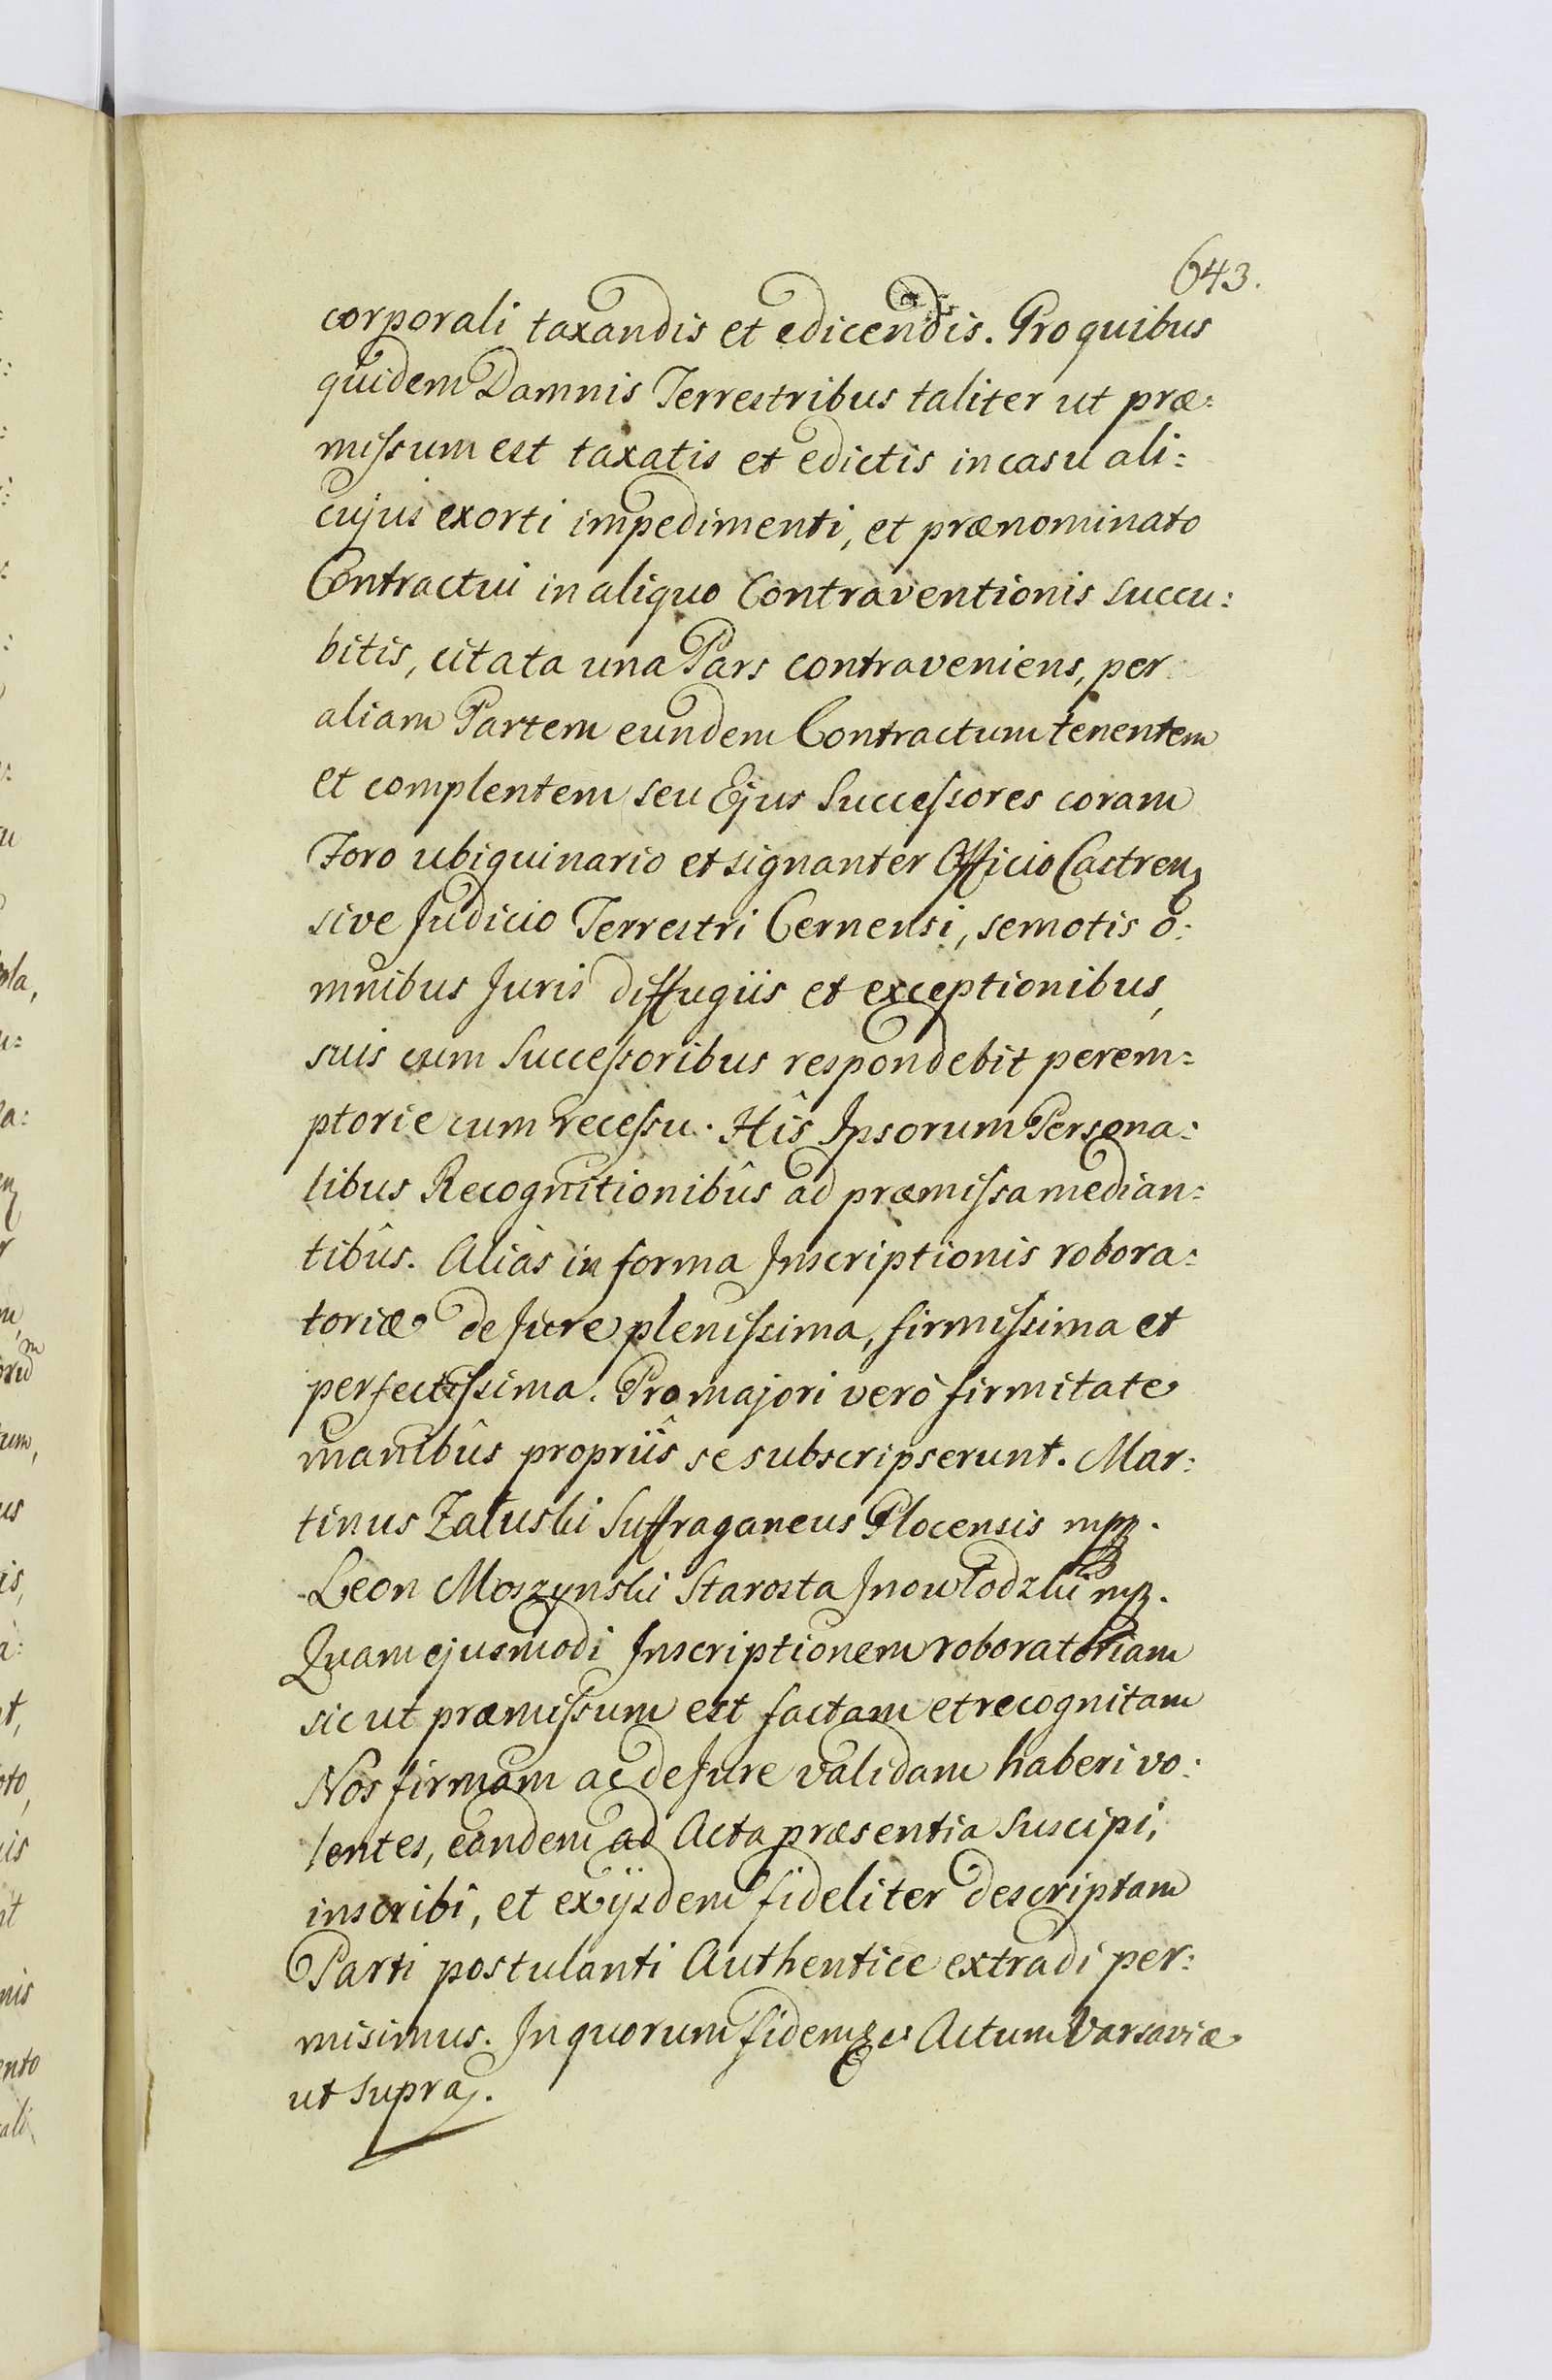 643.
corporali taxandis et edicendis. Pro quibus
quidem Damnis Terrestribus taliter ut præ:
missum est taxatis et edictis in casu ali:
cujus exorti impedimenti, et prænominato
Contractui in aliquo Contraventionis succu:
bitis, citata una Pars contraveniens, per
aliam Partem eundem Contractum tenentem
et complentem seu Ejus Successores coram
Foro ubiquinario et signanter Officio Castren
sive Judicio Terrestri Cernensi, semotis o:
mnibus Juris diffugiis et exceptionibus,
suis cum Successoribus respondebit perem:
ptorie cum recessu. Hîs Ipsorum Persona:
libus Recognitionibûs ad præmissa median:
tibûs. Aliàs in forma Inscriptionis robora:
toriæ de Jure plenissima, firmissima et
perfectissima. Pro majori verò firmitate
manibûs propriîs se subscripserunt. Mar:
tinus Załuski Suffraganeus Plocensis mpp.
Leon Moszynski Starosta Inowłodzki mp.
Quam ejusmodi Inscriptionem roboratoriam
sic ut præmissum est factam et recognitam
Nos firmam ac de Jure validam haberi vo:
lentes, eandem ad Acta præsentia suscipi,
inscribi, et ex ijsdem fideliter descriptam
Parti postulanti Authentice extradi per:
misimus. In quorum fidem &c Actum Varsaviæ
ut supra.